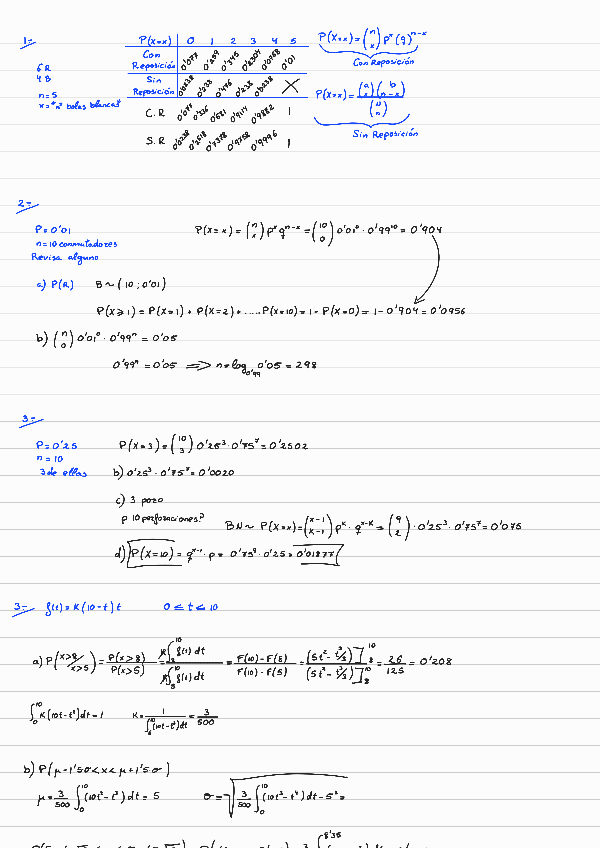 1=
P(X=x) 0 1 2 3 4 5
Con Reposición 0'077 0'259 0'345 0'2304 0'0768 0'01
Sin Reposición 0'0238 0'238 0'476 0'238 0'0238 X
C.R 0'077 0'336 0'681 0'9114 0'9882 1
S.R 0'0238 0'2618 0'7378 0'9758 0'9996 1
6 R
4 B
n=5
x="nº bolas blancas"
P(X=x)=(n x) pˣ (q)ⁿ⁻ˣ
Con Reposición
P(X=x)= (a x)(b n-x) / (n)
Sin Reposición
2=
P=0'01
n=10 conmutadores
Revisa alguno
P(X=x)=(n x) pˣ qⁿ⁻ˣ = (10 0) 0'01⁰ · 0'99¹⁰ = 0'904
a) P(R) B~(10;0'01)
P(X≥1)=P(X=1)+P(X=2)+.....P(X=10)=1-P(X=0)=1-0'904=0'0956
b) (n 0) 0'01⁰ · 0'99ⁿ = 0'05
0'99ⁿ=0'05 ⟹ n=log₀'₉₉ 0'05 = 298
3=
P=0'25
n=10
3 de ellas
P(X=3)=(10 3) 0'25³ · 0'75⁷ = 0'2502
b) 0'25³ · 0'75⁷ = 0'0020
c) 3 pozo
p 10 perforaciones?
BN~ P(X=x)=(x-1 k-1) pᵏ · qˣ⁻ᵏ = (9 2) · 0'25³ · 0'75⁷ = 0'075
d) P(X=10) = qˣ⁻¹ · p = 0'75⁹ · 0'25 = 0'01877
3= f(t)=K(10-t)t 0≤t≤10
a) P(x>8/x>5) = P(x>8)/P(x>5) = K∫₈¹⁰ f(t)dt / K∫₅¹⁰ f(t)dt = F(10)-F(8) / F(10)-F(5) = (5t²-t³/3)]₈¹⁰ / (5t²-t³/3)]₈¹⁰ = 26/125 = 0'208
∫₀¹⁰ K(10t-t²)dt=1 K= 1 / ∫₀¹⁰(10t-t²)dt = 3/500
b) P(μ-1'5σ<x<μ+1'5σ)
μ= 3/500 ∫₀¹⁰ (10t²-t³)dt = 5 σ=√(3/500 ∫₀¹⁰ (10t³-t⁴)dt-5²=